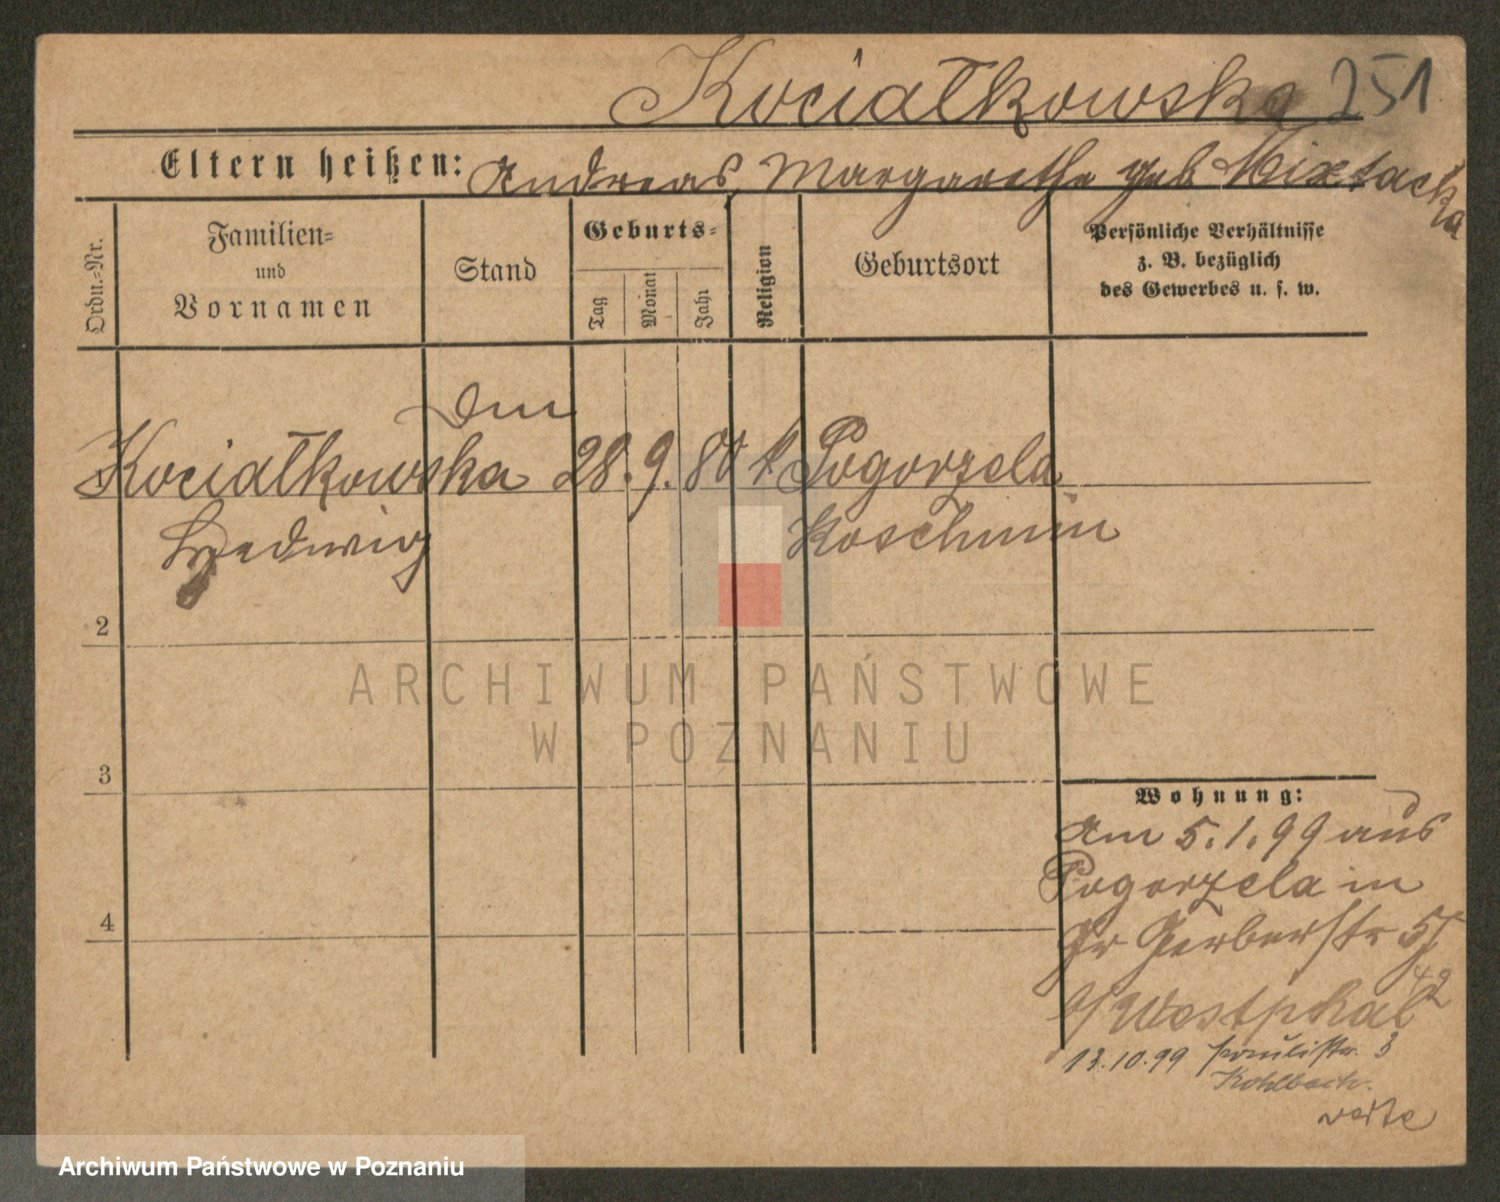 Kociałkowska 251
Eltern heißen: Andreas, Margarethe geb Mixtacka
Ordn.=Nr.
Familien=
und
Vornamen
Stand
Geburts=
Tag
Monat
Jahr
Religion
Geburtsort
Persönliche Verhältnisse
z. B. bezüglich
des Gewerbes u. s. w.
Kociałkowska 28. 9. 80 k Pogorzela
Hedwig Koschmin
2
3
4
Wohnung:
Am 5.1.99 aus
Pogorzela in
Gr Gerberstr
b/ Westphal
13.10.99 Paulistr. 3
verte
ARCHIWUM PAŃSTWOWE
W POZNANIU
Archiwum Państwowe w Poznaniu